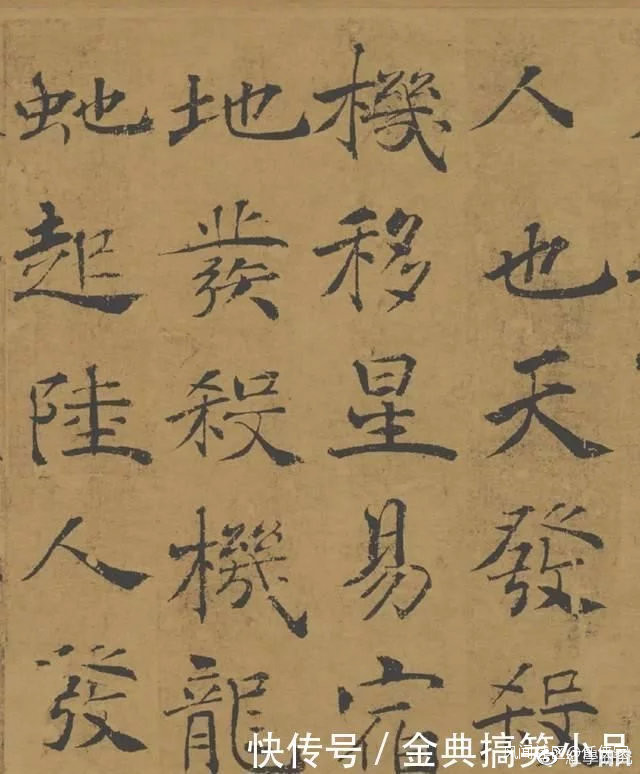 人也天發殺
機移星易宿
地發殺機龍
虵起陸人發
快传号/金典搞笑小品